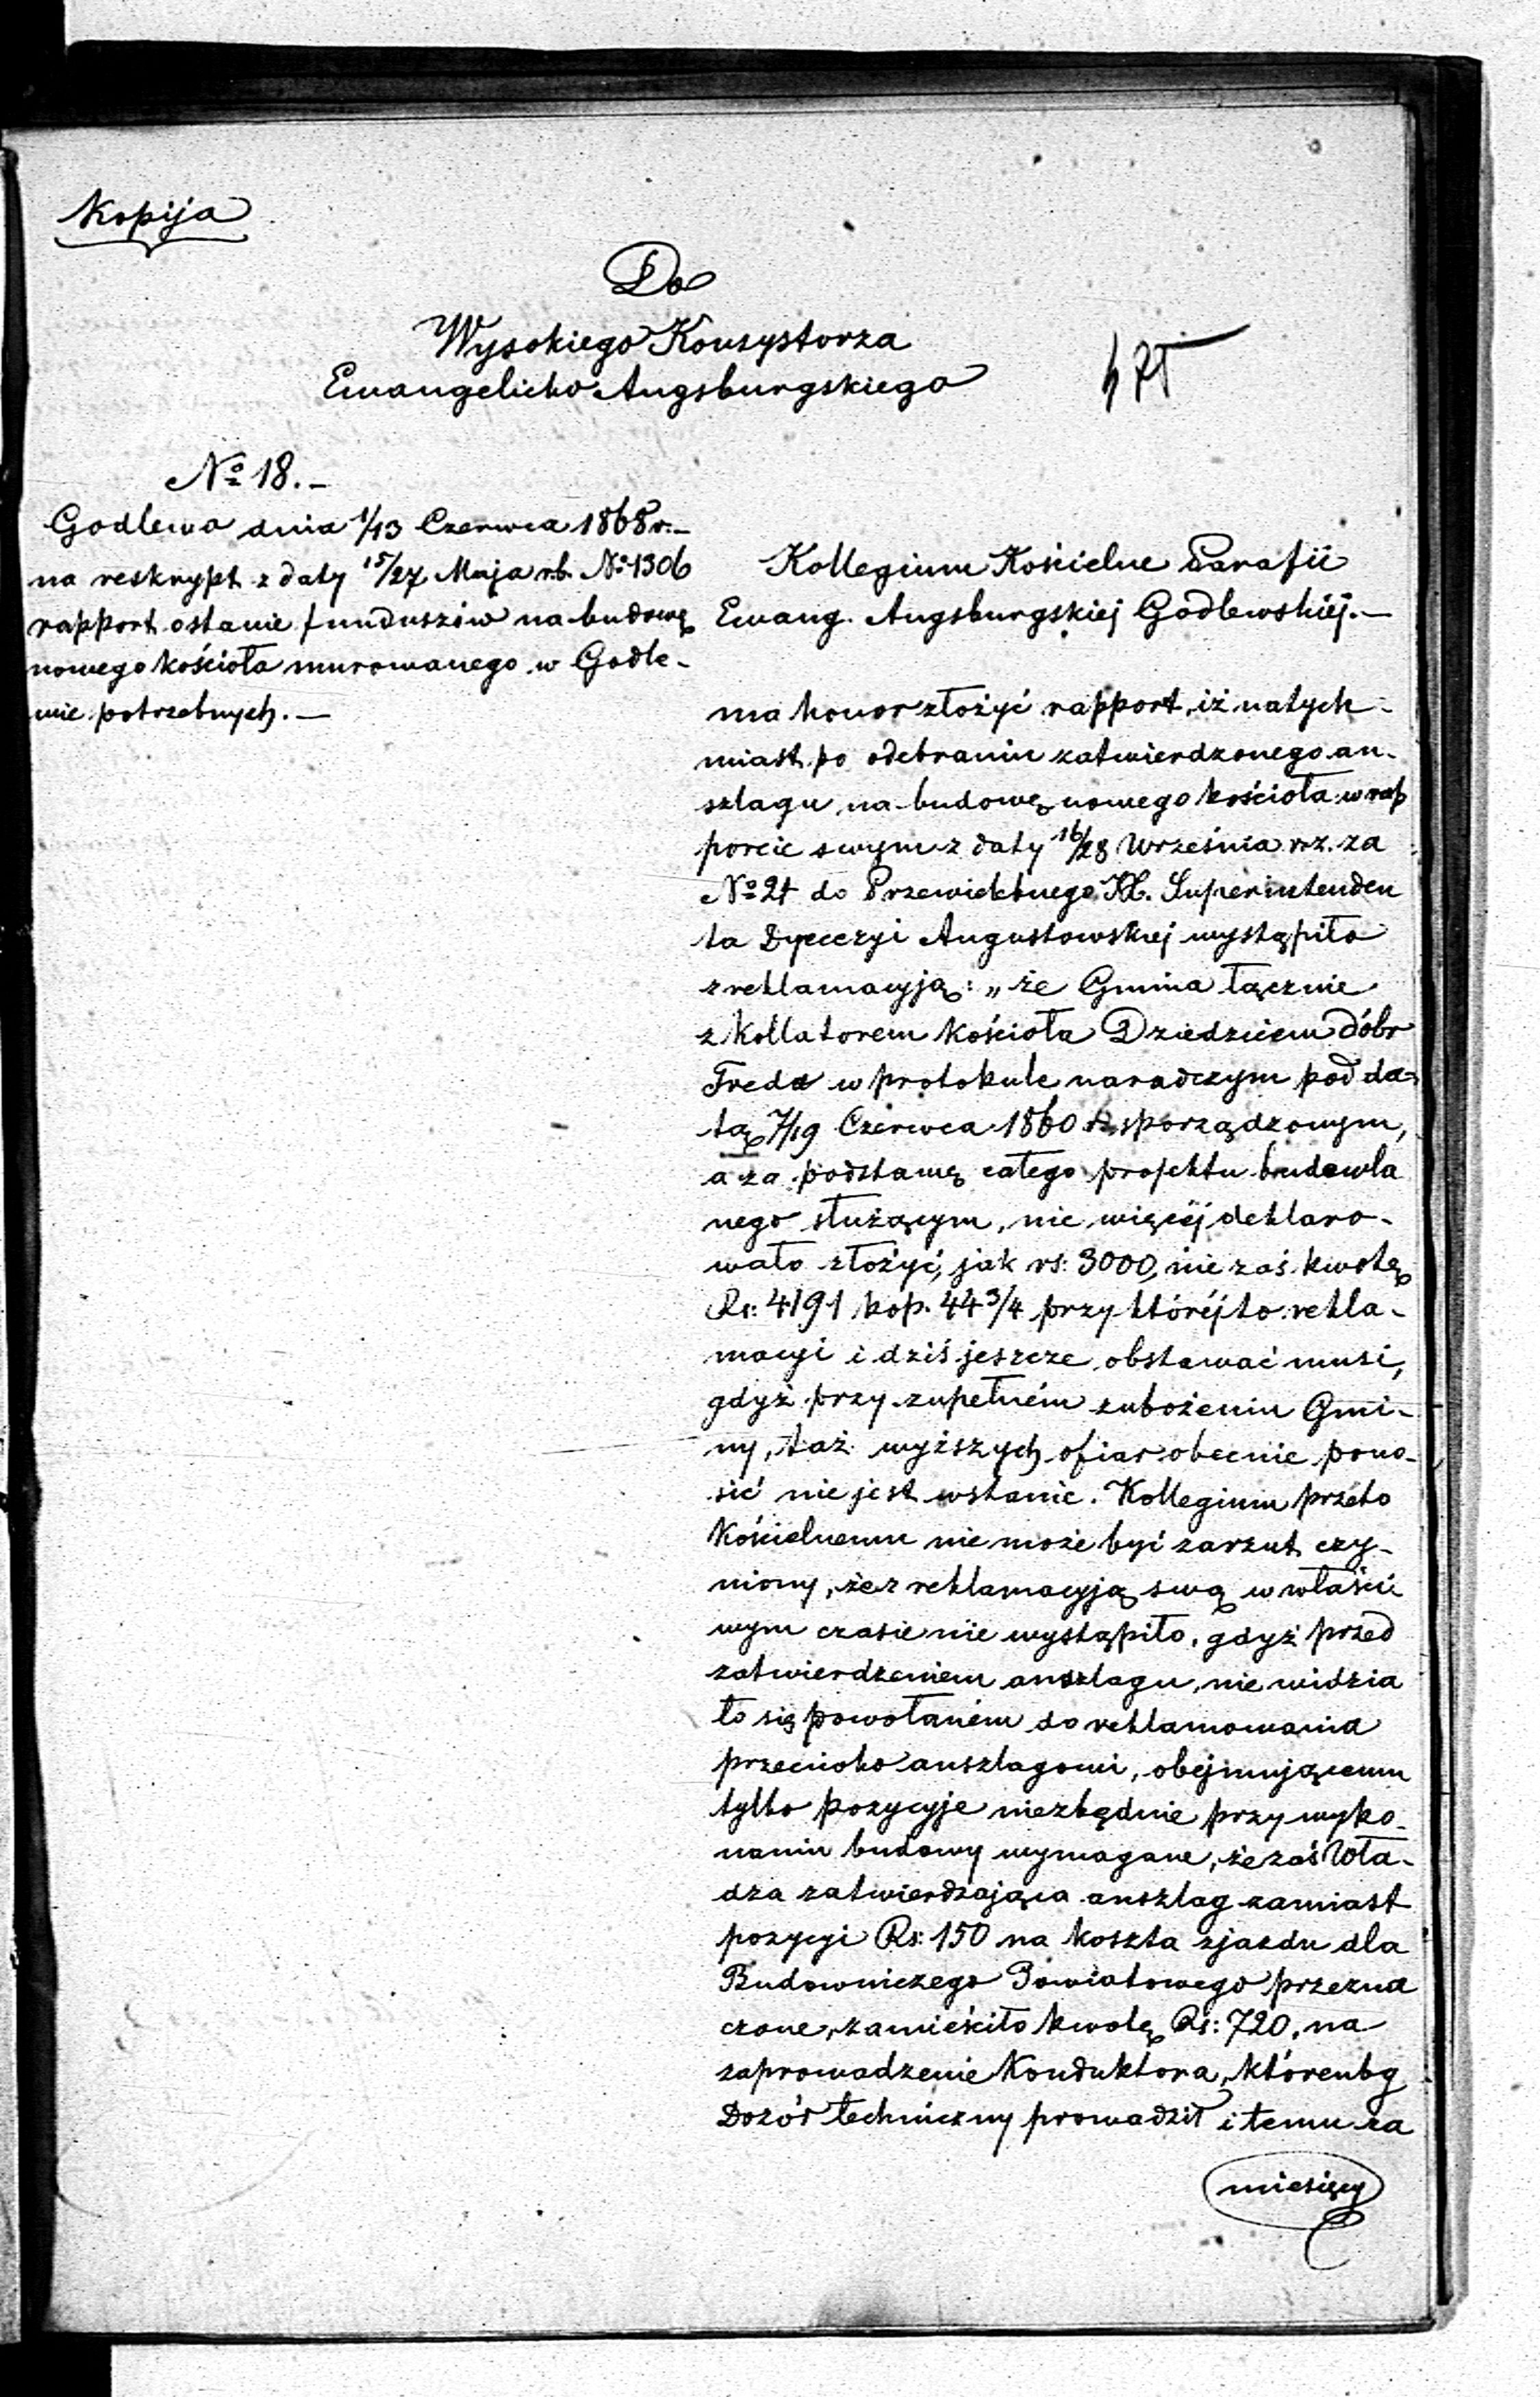 Kopija
Do
Wysokiego Konsystorza
Ewangelicko Augsburgskiego
No 18.-
Godlewo dnia 1/13 Czerwca 1868 r.-
na reskrypt z daty 15/27 Maja r.b. No 1306
rapport o stanie funduszów na budowę
nowego kościoła murowanego w Godle-
wie potrzebnych.-
Kollegium Kościelne Parafii
Ewang. Augsburgskiej Godlewskiéj.-
ma honor złożyć rapport, iż natych-
miast po odebraniu zatwierdzonego an-
szlagu, na budowę nowego kościoła w rap
porcie swym z daty 16/28 Września r.z. za
No 21 do Przewielebnego Superintenden
ta Dyecezyi Augustowskiej wystąpiło
z reklamacyją: „że Gmina łącznie
z kollatorem kościoła Dziedzicem dóbr
Freda w protokule naradczym pod da-
tą 7/19 Czerwca 1860 r. sporządzonym,
a za podstawę całego projektu budowla
nego służącym, nie więcéj deklaro-
wało złożyć, jak rs: 3000, nie zaś kwotę
Rs: 4191 kop. 44 3/4 przy któréjto rekla-
macyi i dziś jeszcze obstawać musi,
gdyż przy zupełném zubożeniu Gmi-
ny, taż wyższych ofiar obecnie pono-
sić nie jest wstanie. Kollegium przeto
Kościelnemu nie może być zarzut czy-
niony, że z reklamacyją swą w właści
wym czasie nie wystąpiło, gdyż przed
zatwierdzeniem anszlagu, nie widzia
ło się powołaném do reklamowania
przeciwko anszlagowi, obejmującemu
tylko pozycyje niezbędnie przy wyko-
naniu budowy wymagane, że zaś Wła-
dza zatwierdzająca anszlag zamiast
pozycyi Rs: 150 na koszta zjazdu dla
Budowniczego Powiatowego przezna
czone, zamieściło kwotę Rs: 720, na
zaprowadzenie Konduktora, którenby
Dozór techniczny prowadził i temu za
miesięcy